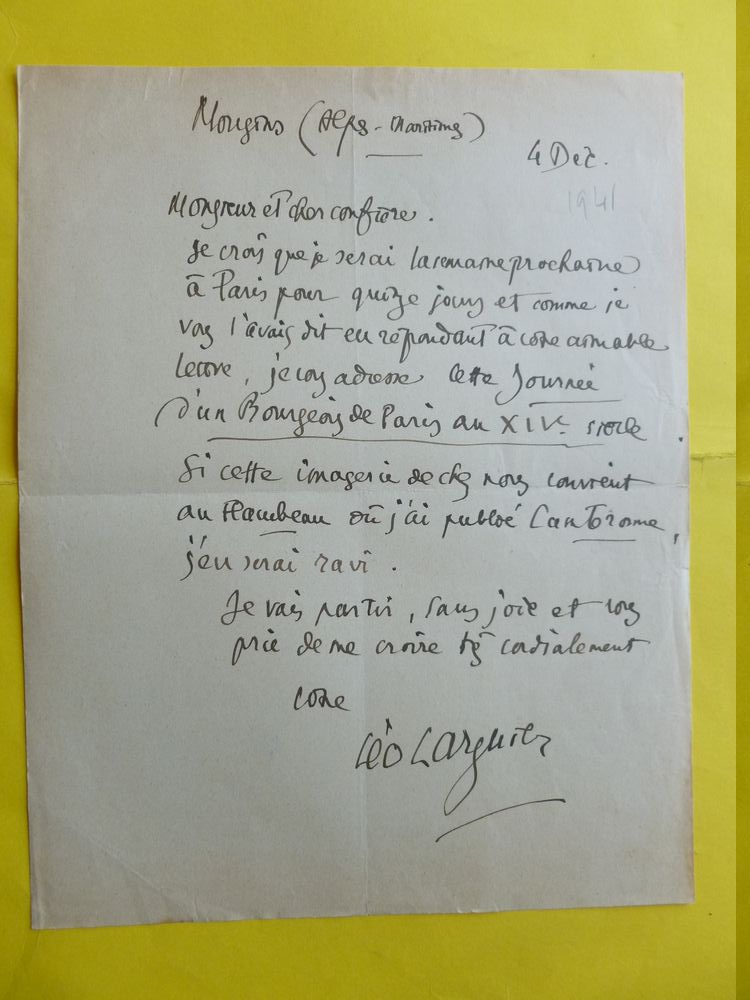 Mougins (Alpes-Maritimes)
4 Déc.
1941
Monsieur et cher confrère.
Je crois que je serai la semaine prochaine
à Paris pour quinze jours et comme je
vous l'avais dit en répondant à votre aimable
lettre, je vous adresse cette Journée
d'un Bourgeois de Paris au XIVe siècle.
Si cette imagerie de chez nous convient
au Flambeau où j'ai publié L'an Torome,
j'en serai ravi.
Je vais partir, sans joie et vous
prie de me croire très cordialement
votre
Léo Larguier